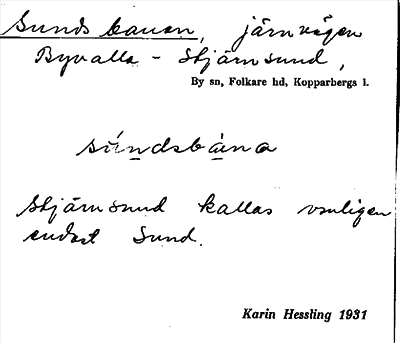 Sundsbanan, järnvägen
Byvalla - Stjärnsund,
By sn, Folkare hd, Kopparbergs l.
súndsbàna
Stjärnsund kallas vanligen
endast Sund.
Karin Hessling 1931